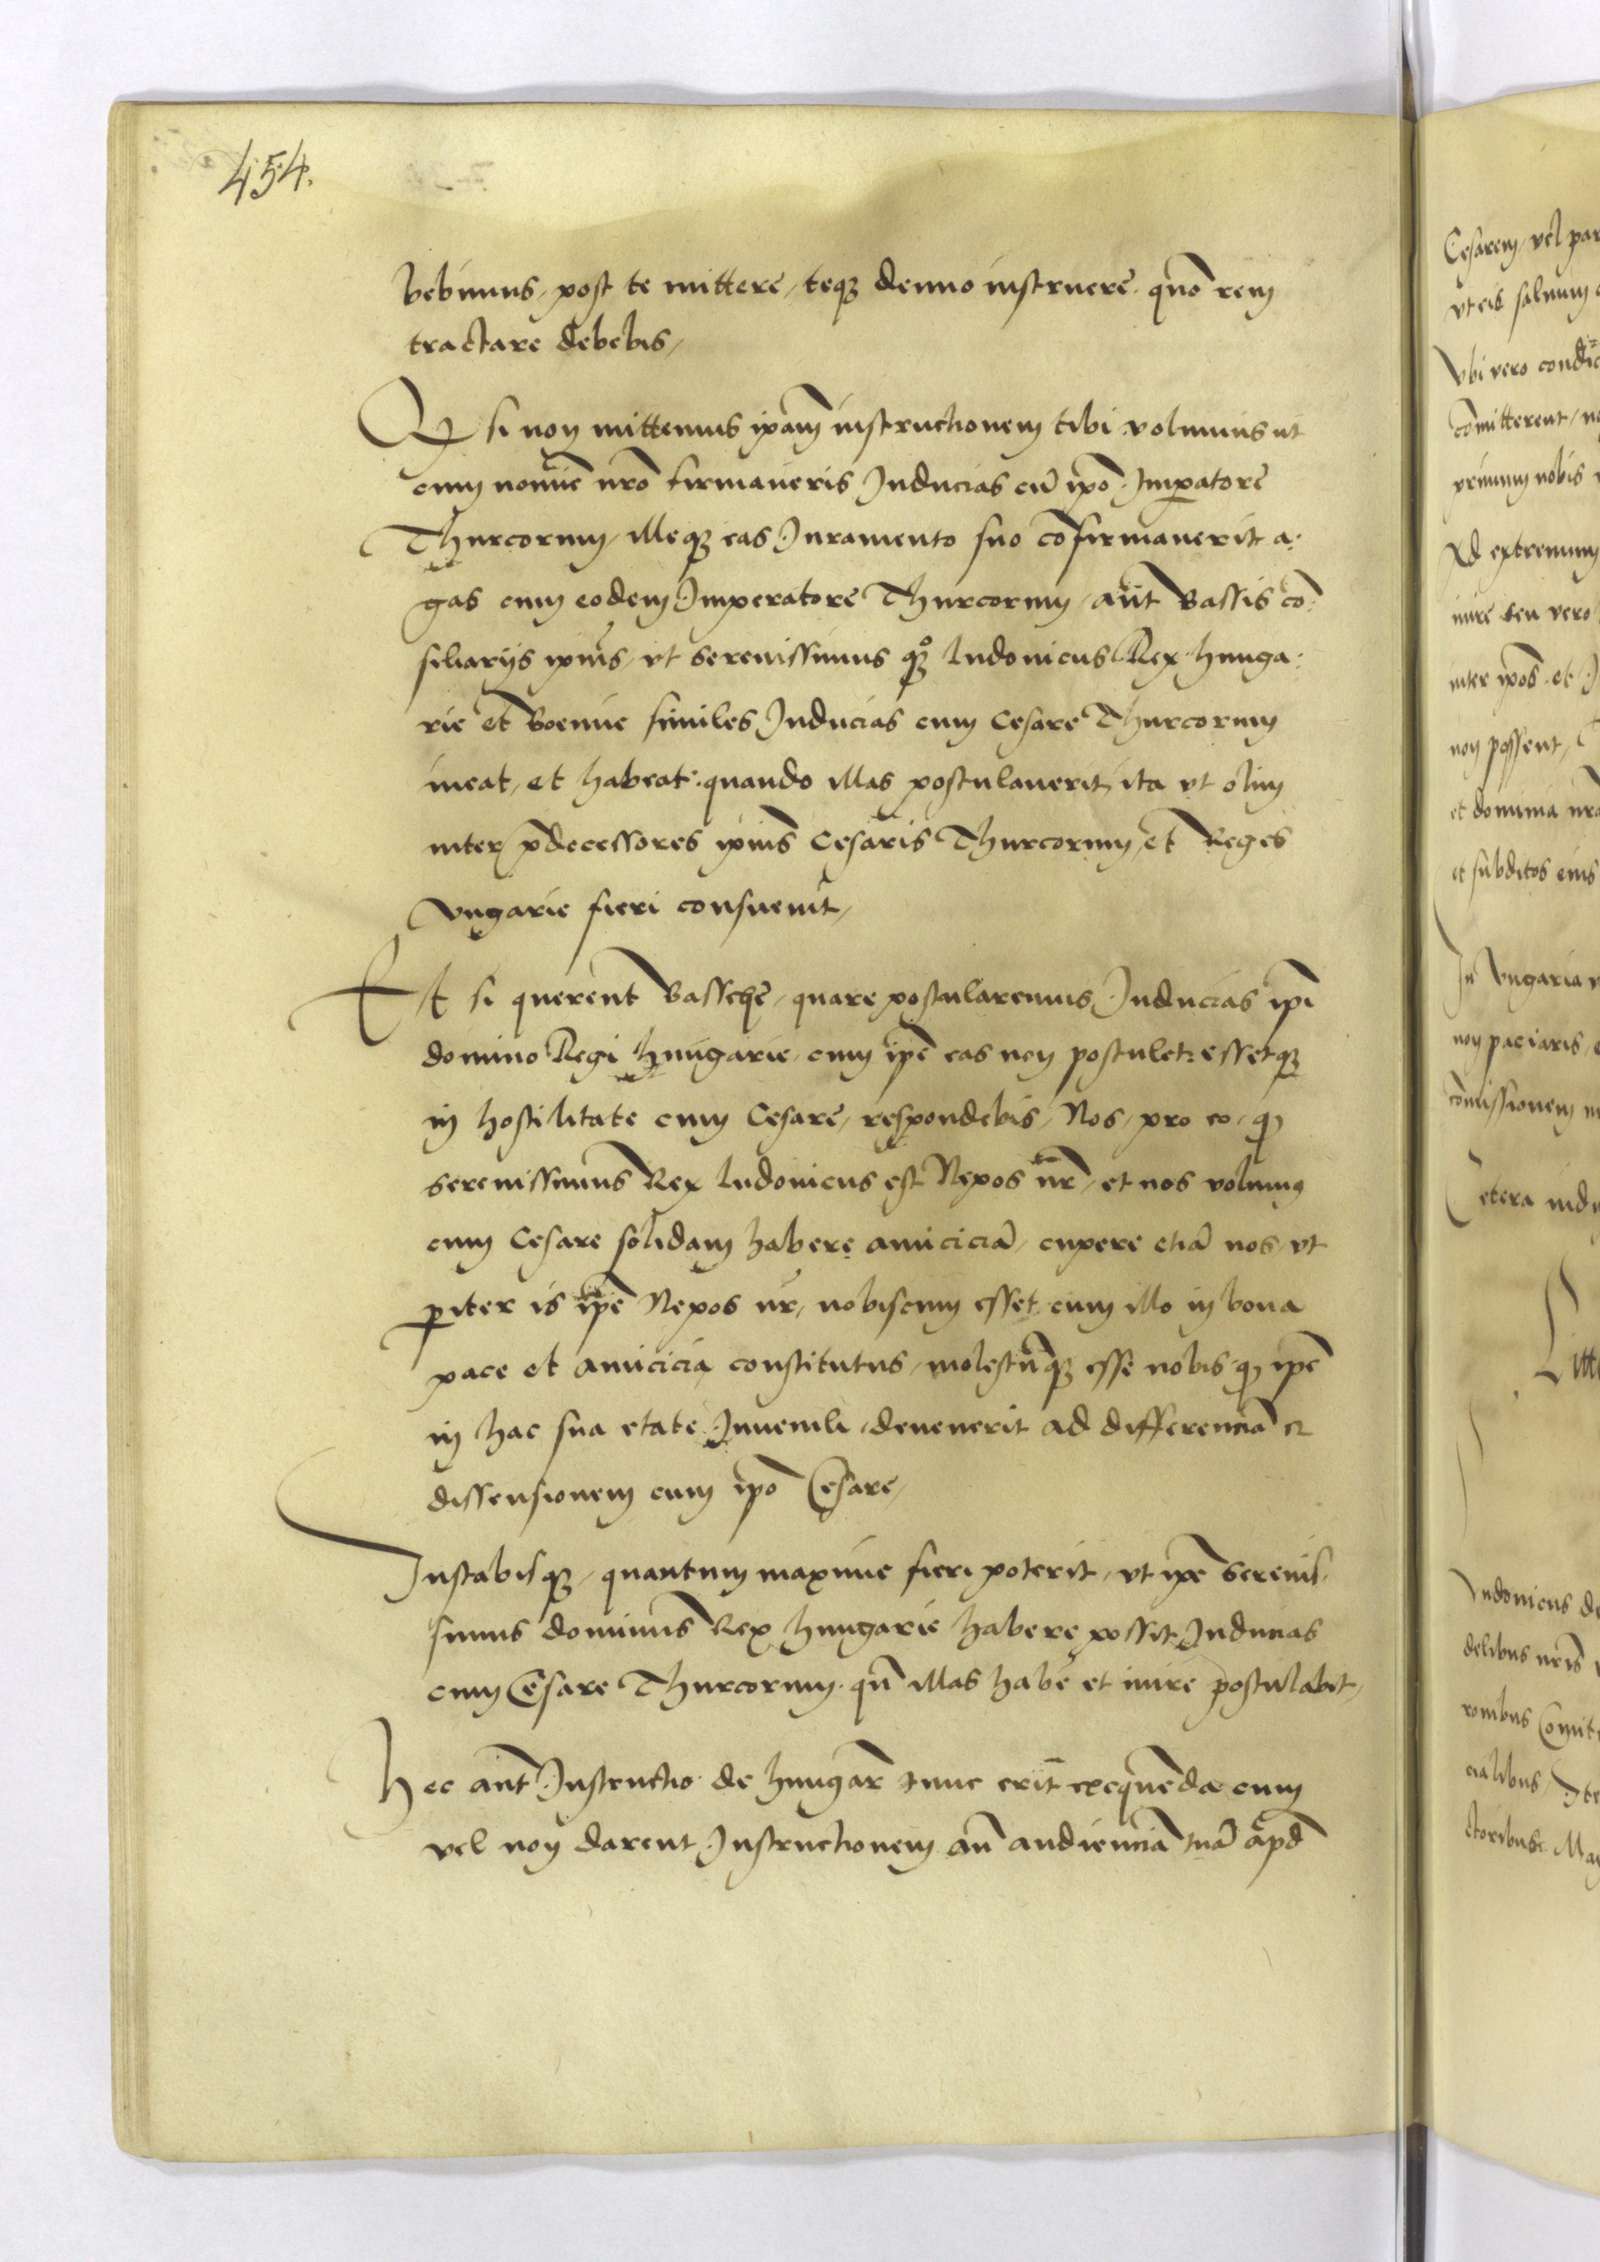 454.
bebimus, post te mittere, teqʒ denuo instruere quō rem
tractare debebis,
Qr si non mittemus ipām instructionem tibi volumus ut
cum nomīe nrō firmaveris Inducias cū ipō Imperatore
Thurcorum, illeqʒ eas Juramento suo cōfirmaverit a:
gas cum eodem Imperatore Thurcorum, aut Bassis cō:
siliarijs ipīus, vt Serenissimus qʒ Ludovicus Rex hunga:
rie et Boemie similes Inducias cum Cesare Thurcorum
ineat, et habeat: quando illas postulaverit, ita vt olim
inter pdecessores ipīus Cesaris Thurcorum, et Reges
Vngarie fieri consuevit,
Et si querent Bassche, quare postularemus Inducias ipī
domino Regi hungarie, cum ipē eas non postulet: essetqʒ
in hostilitate cum Cesare, respondebis, Nos, pro eo, qz
Serenissimus Rex Ludovicus est Nepos nr̄, et nos volumus
cum Cesare solidam habere amiciciā, cupere etiā nos, vt
piter is ipē Nepos nr̄, nobiscum esset cum illo in bona
pace et amicicia constitutus, molestūqʒ esse nobis, qz ipē
in hac sua etate Juvenili, devenerit ad differenciā et
dissensionem cum ipō Cesare,
Instabisqʒ, quantum maxime fieri poterit, vt ipē Serenis,
simus dominus Rex hungarie habere possit Inducias
cum Cesare Thurcorum, qn̄ illas habē et inire postulabit,
Hec aūt Instructio de hungar̄ tunc erit exequēda cum
vel non darent Instructionem an̄ audienciā tuā apd̄
Cesarem, vel par
vt eis salvum
Vbi vero condic
cōmitterent, no
primum nobis
Ad extremum
inire seu vero
inter ipōs et I
non possent,
et dominia nrā
et subditos eius
In Vngaria
non paciaris,
cōmissionem
Cetera
Litt
Ludovicus de
delibus nrīs
ronibus Comit
cialibus, Ite
ctoribus Ma